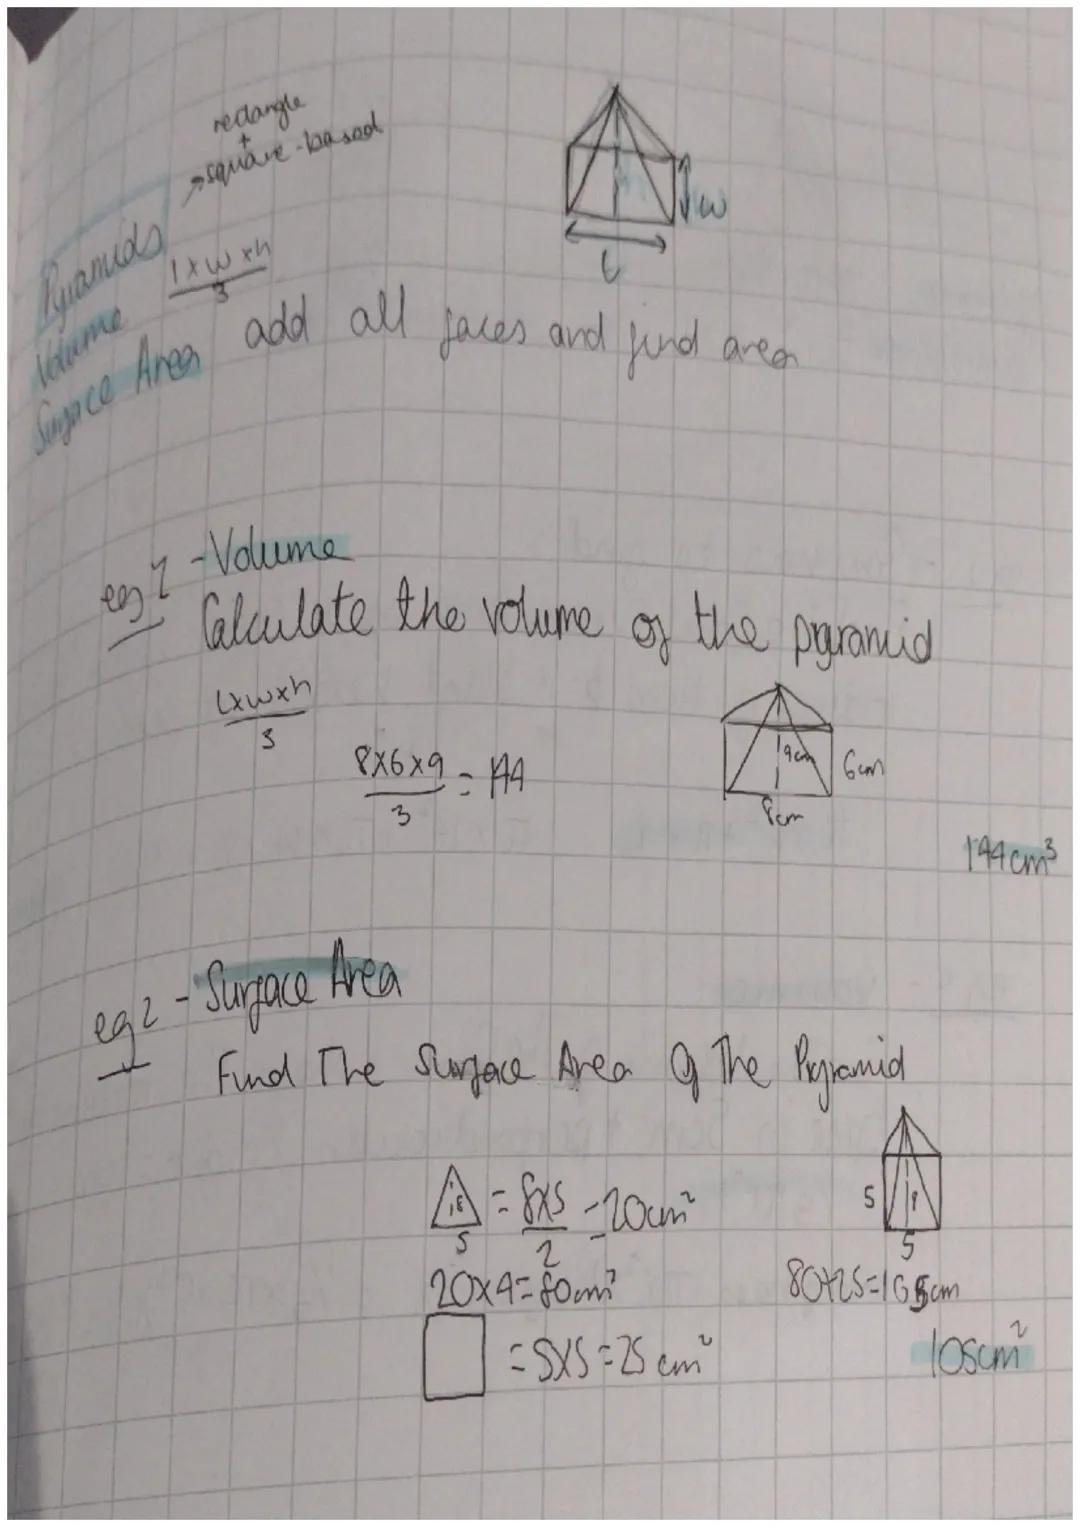 rectangle
+
→ square-based
Pyramids
w
l
Volume l×w×h
3
Surface Area add all faces and find area
eg1 - Volume
Calculate the volume of the pyramid
L×w×h
3
8×6×9 = 144
3
9cm
6cm
8cm
144cm³
eg2 - Surface Area
Find The Surface Area of The Pyramid
8
5
= 8×5 = 20cm²
2
5
8
5
20×4=80cm²
80+25=105cm
= 5×5=25 cm²
105cm²